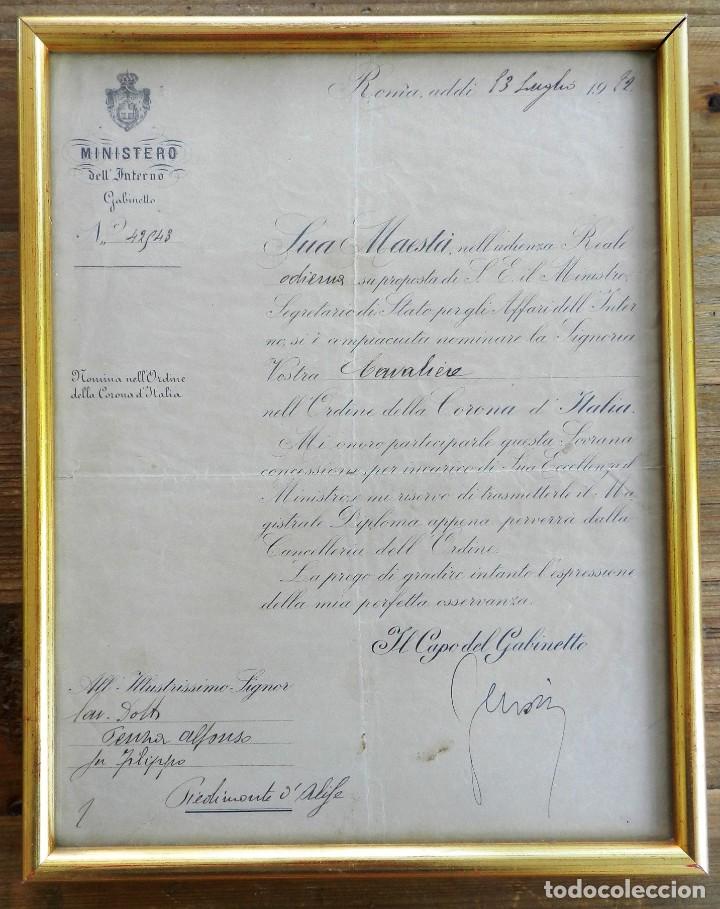 Roma, addì 13 Luglio 19
MINISTERO
dell'Interno
Gabinetto
N.° 42943
Sua Maestà, nell'udienza Reale
odierna su proposta di S. E. il Ministro,
Segretario di Stato per gli Affari dell'Inter
no, si è compiaciuta nominare la Signoria
Vostra Cavaliere
nell'Ordine della Corona d'Italia.
Nomina nell'Ordine
della Corona d'Italia
Mi onoro parteciparle questa Sovrana
concessione, per incarico di Sua Eccellenza il
Ministro, e mi riservo di trasmetterle il Ma
gistrale Diploma appena perverrà dalla
Cancelleria dell'Ordine.
La prego di gradire intanto l'espressione
della mia perfetta osservanza.
Il Capo del Gabinetto
All'Illustrissimo Signor
Cav. Dott.
Alfonso
fu Filippo
Piedimonte d'Alife
todocoleccion